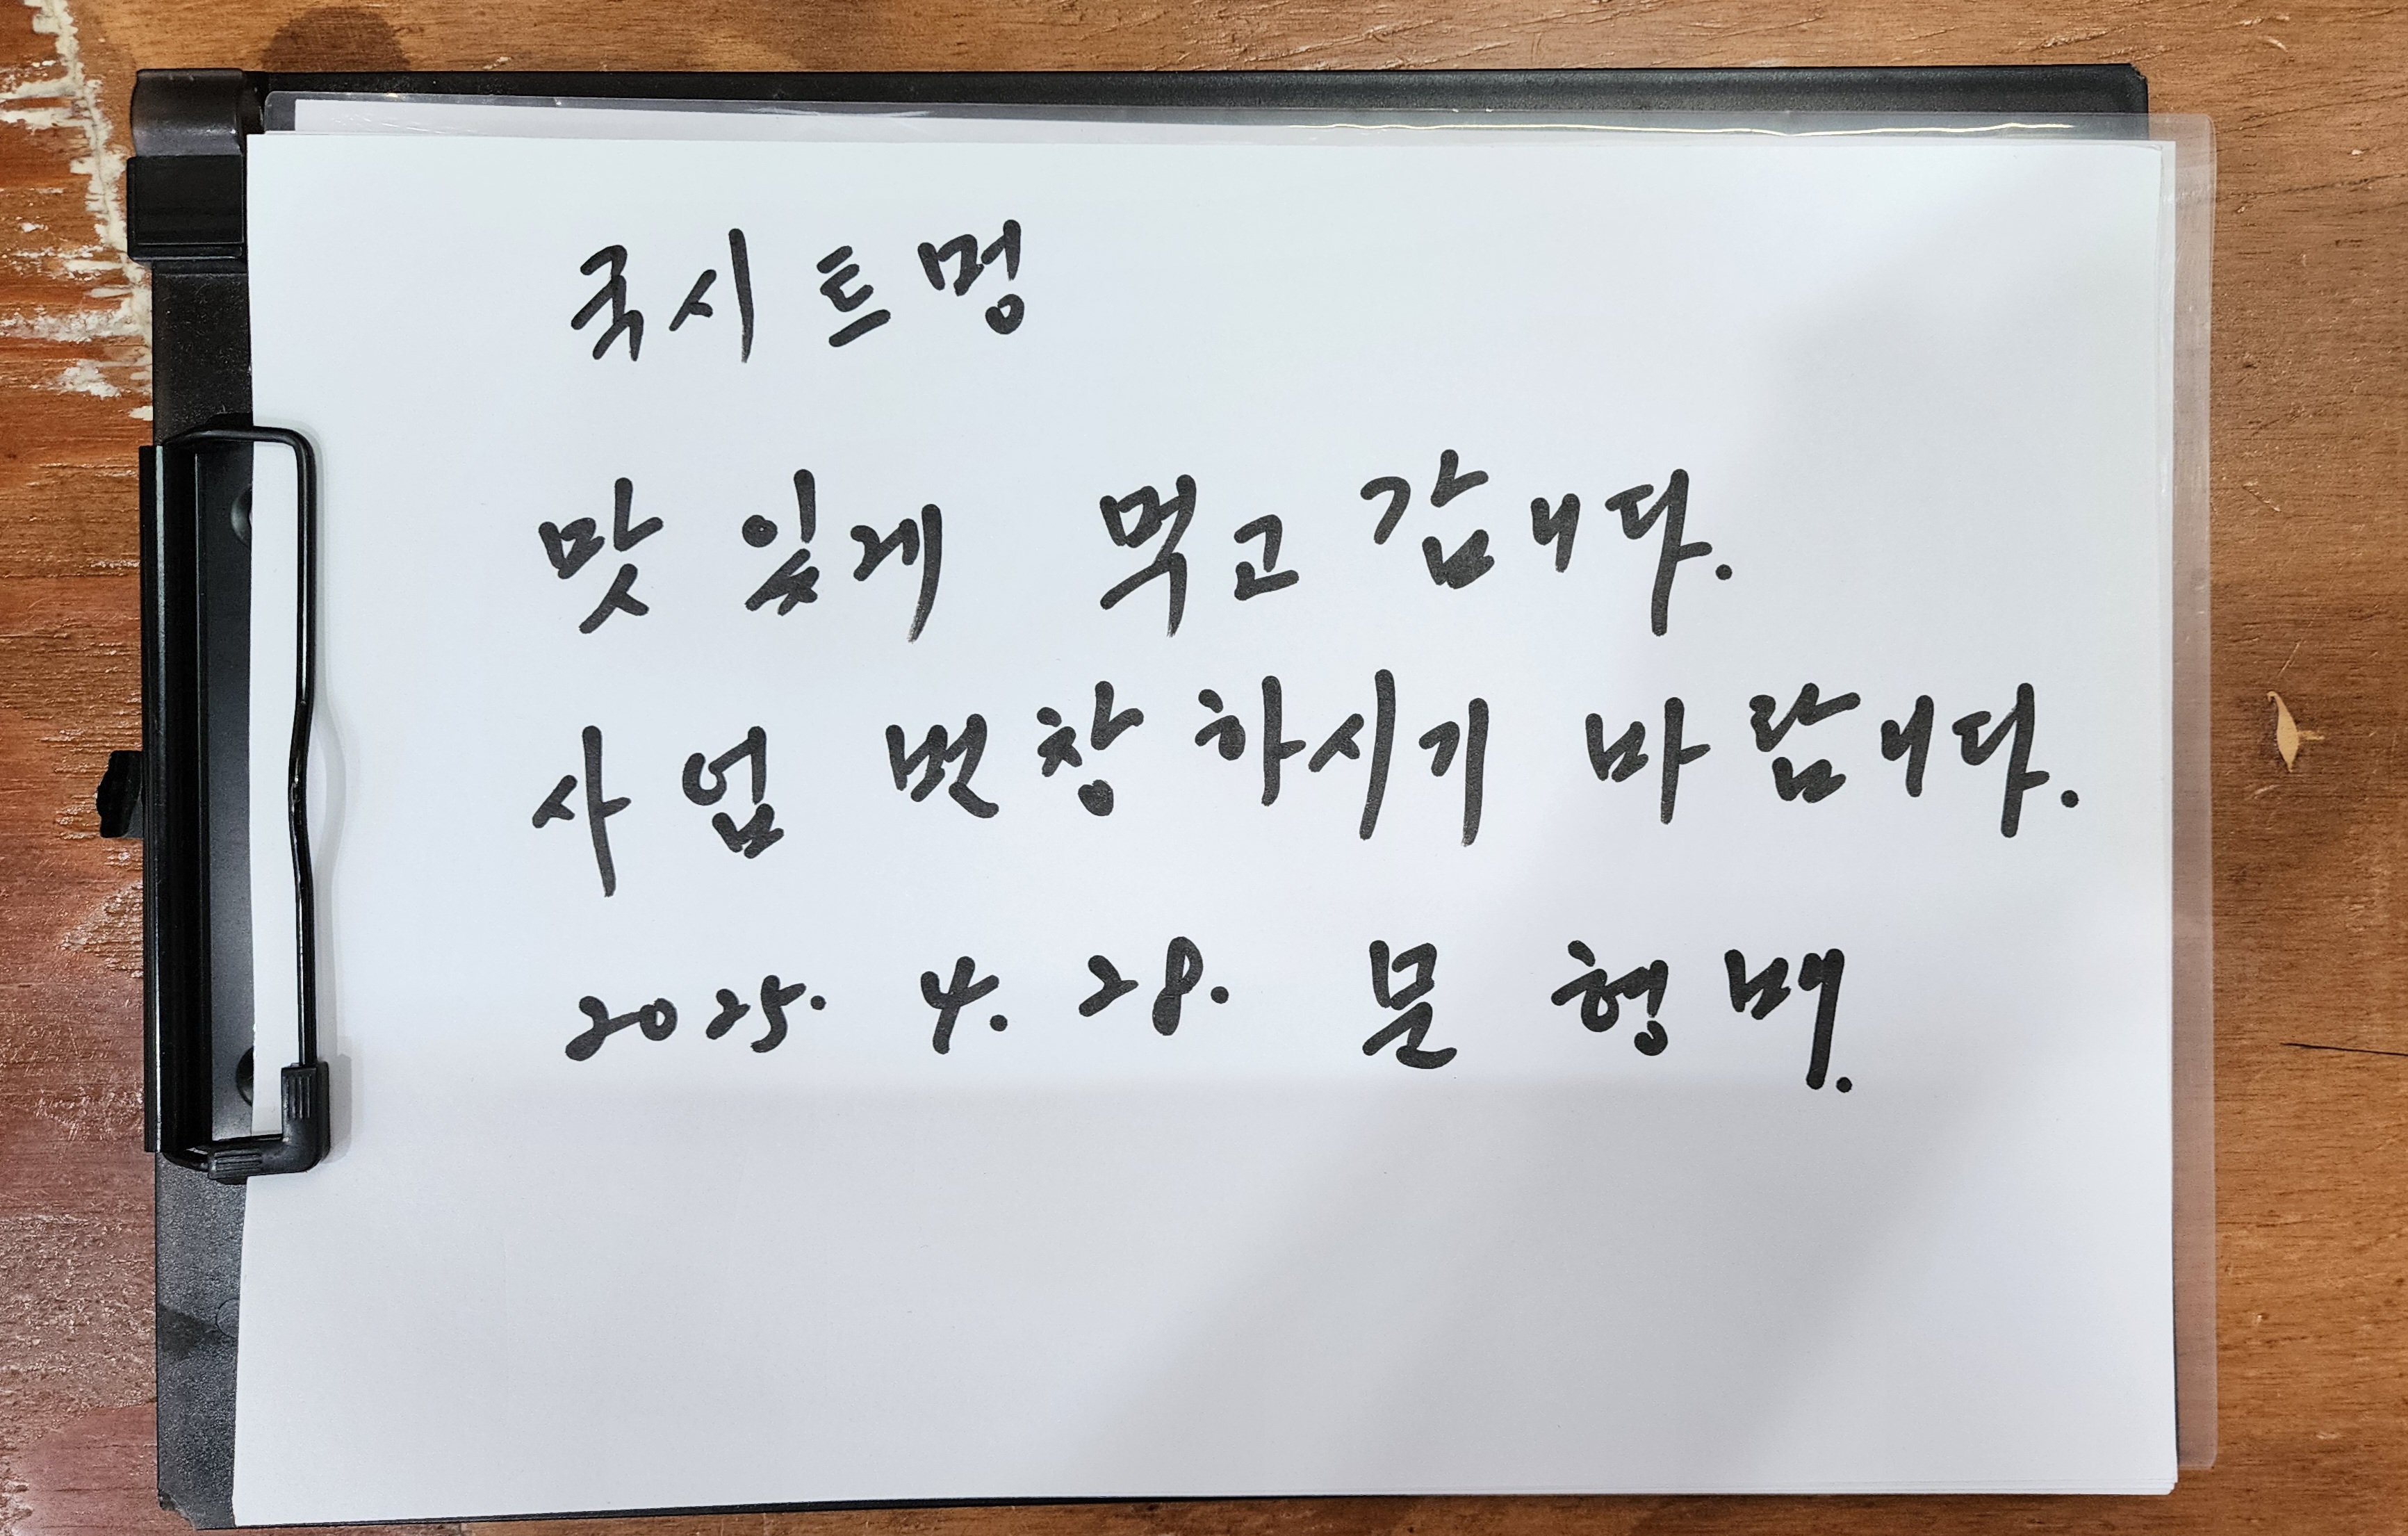 국시트멍
맛있게 먹고 갑니다.
사업 번창하시기 바랍니다.
2025. 4. 28. 문형배.